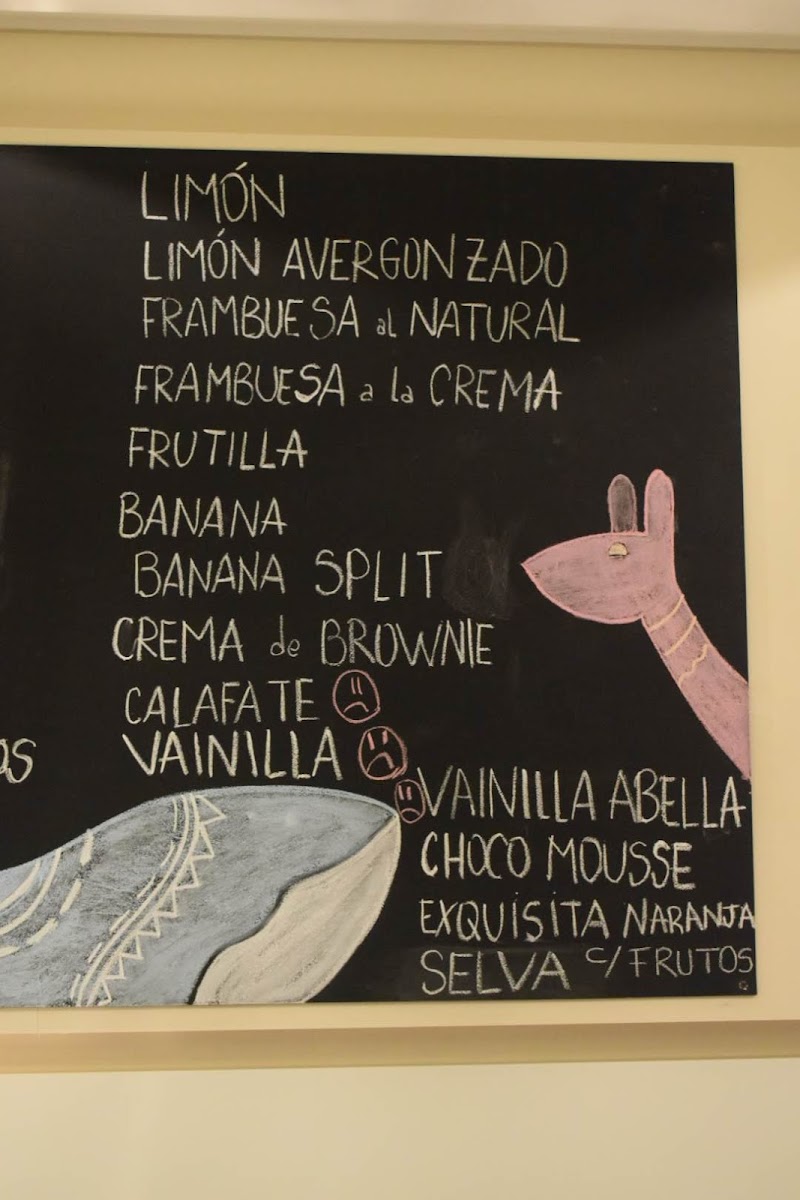 LIMÓN
LIMÓN AVERGONZADO
FRAMBUESA al NATURAL
FRAMBUESA a la CREMA
FRUTILLA
BANANA
BANANA SPLIT
CREMA de BROWNIE
CALAFATE
VAINILLA
OS
VAINILLA ABELLA
CHOCO MOUSSE
EXQUISITA NARANJA
SELVA c/FRUTOS